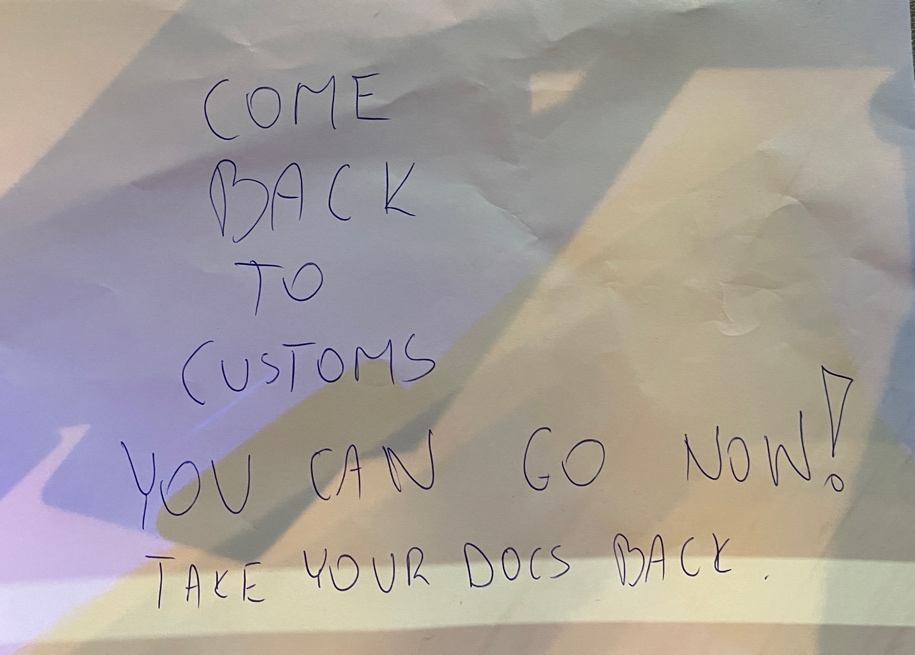 COME
BACK
TO
CUSTOMS
YOU CAN GO NOW!
TAKE YOUR DOCS BACK.